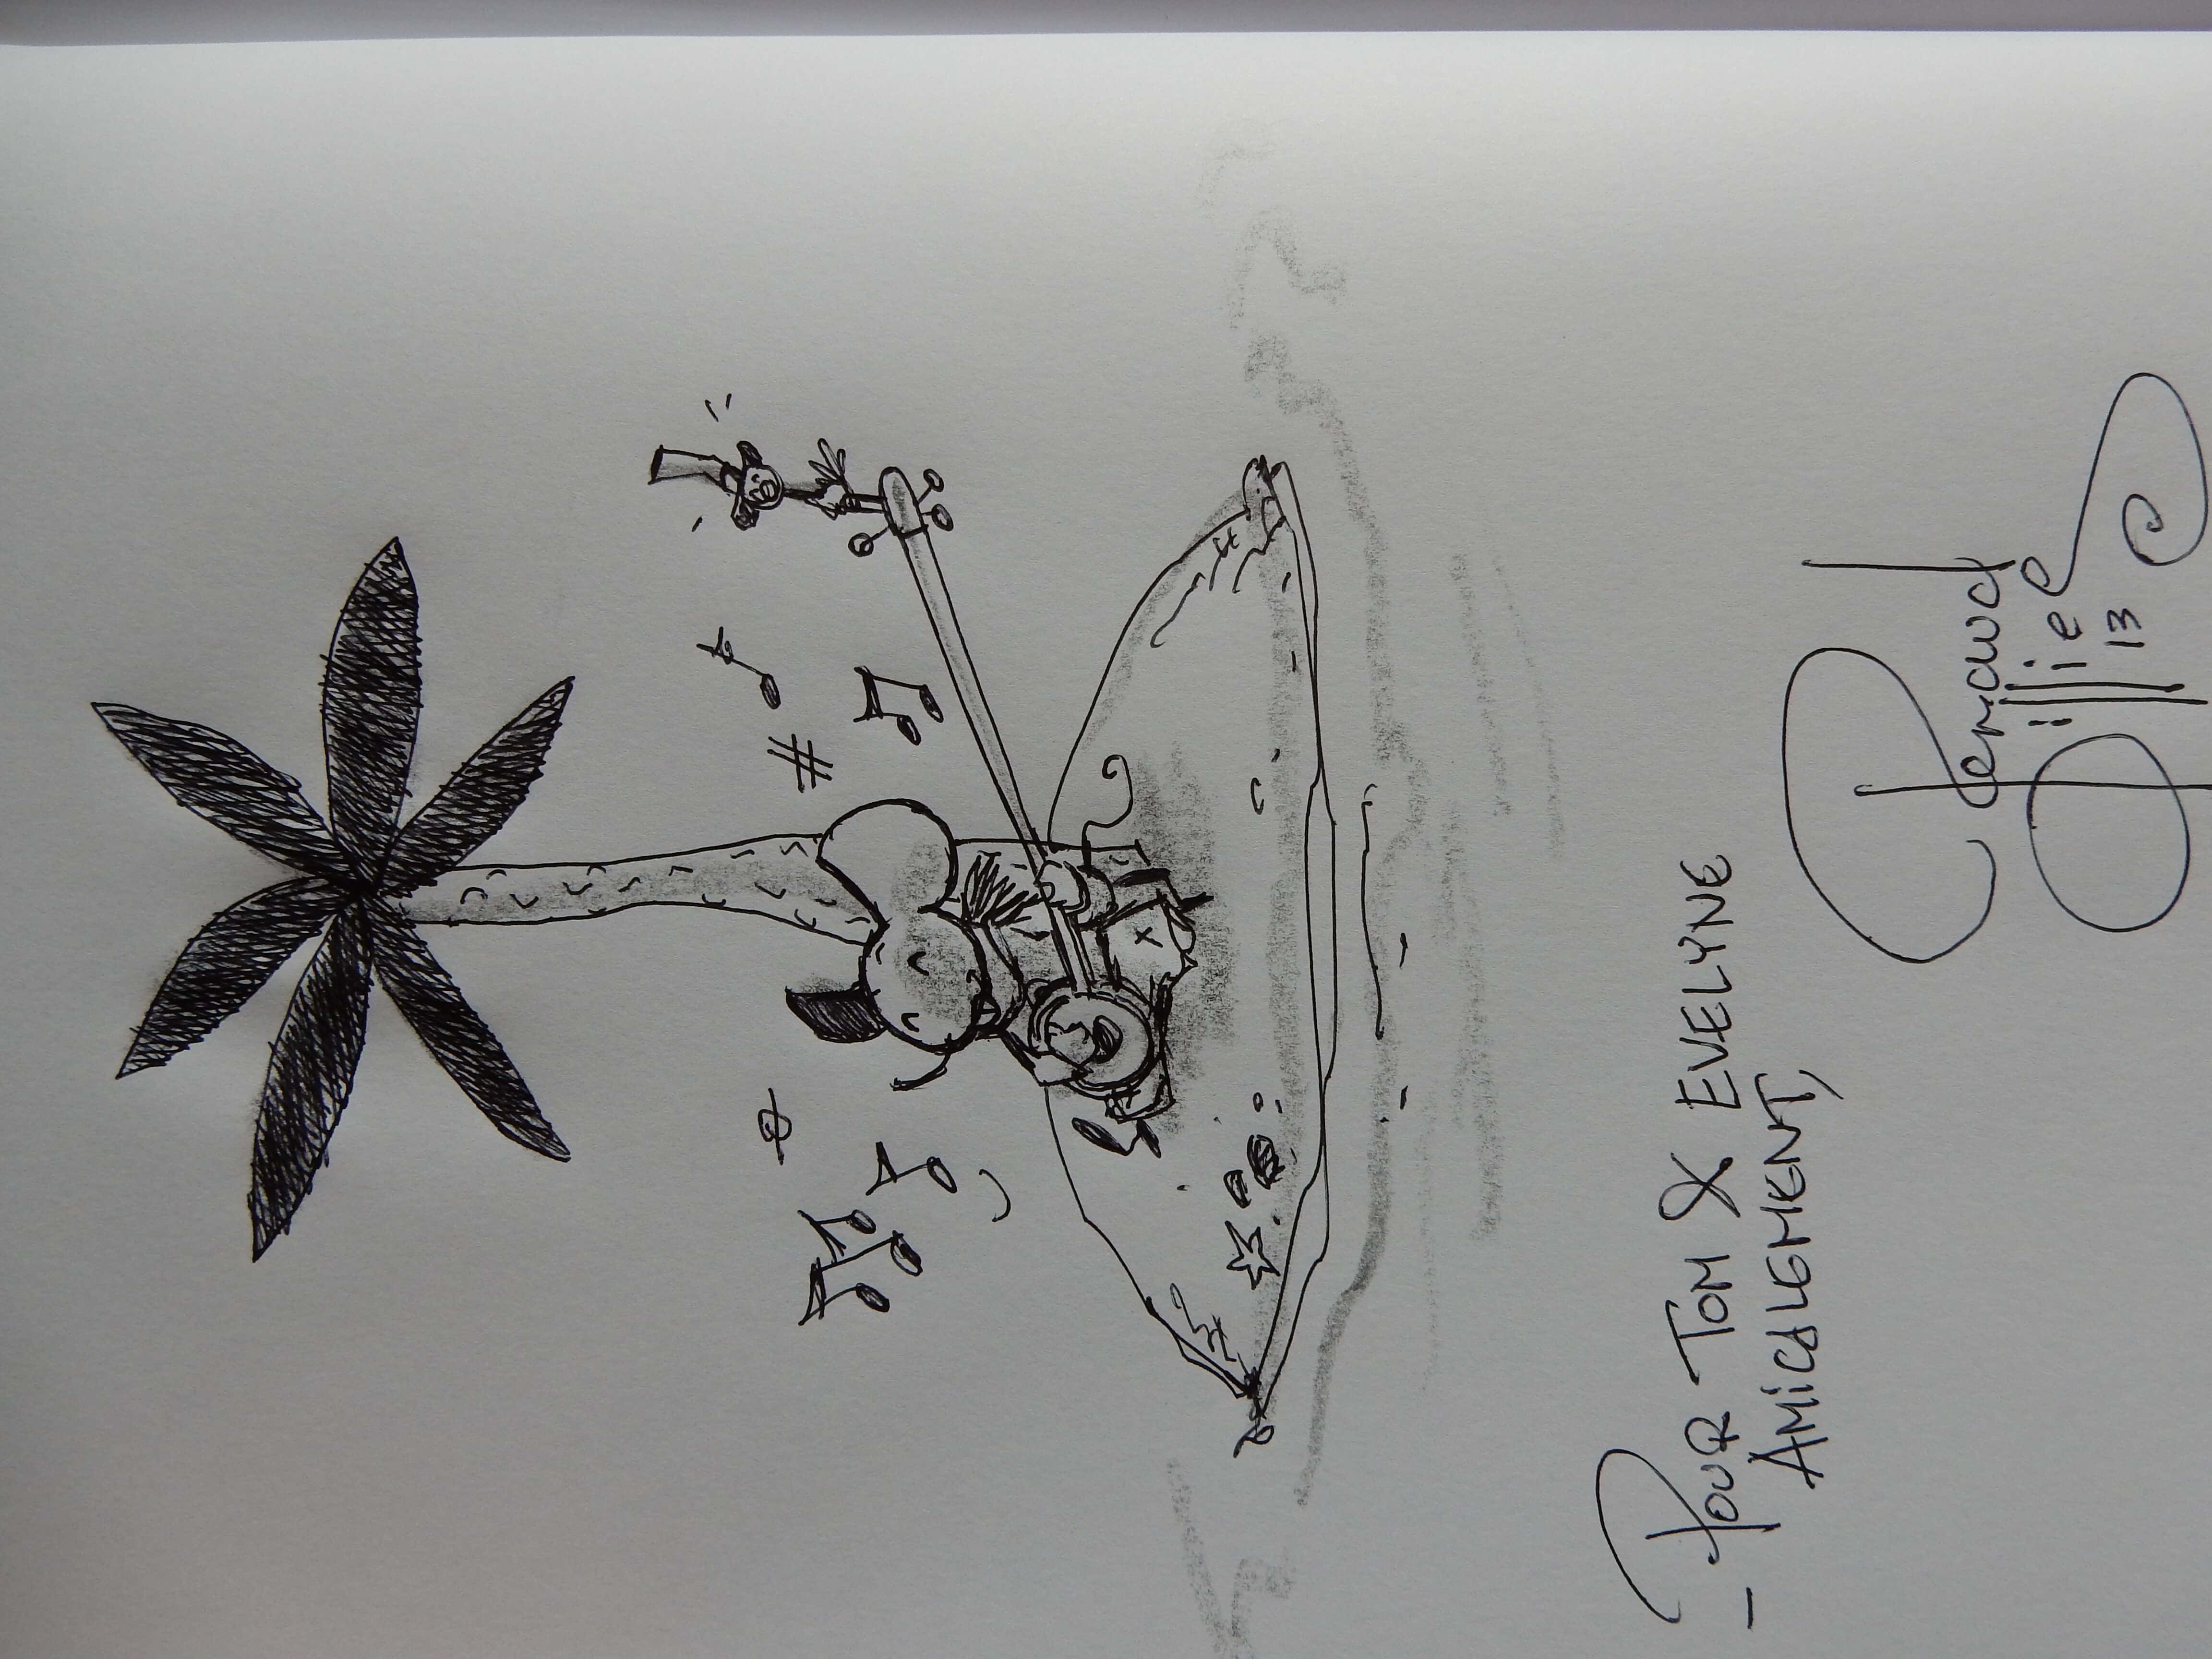 - POUR TOM & EVELYNE
AMICALEMENT,
Renaud
Dillies
13